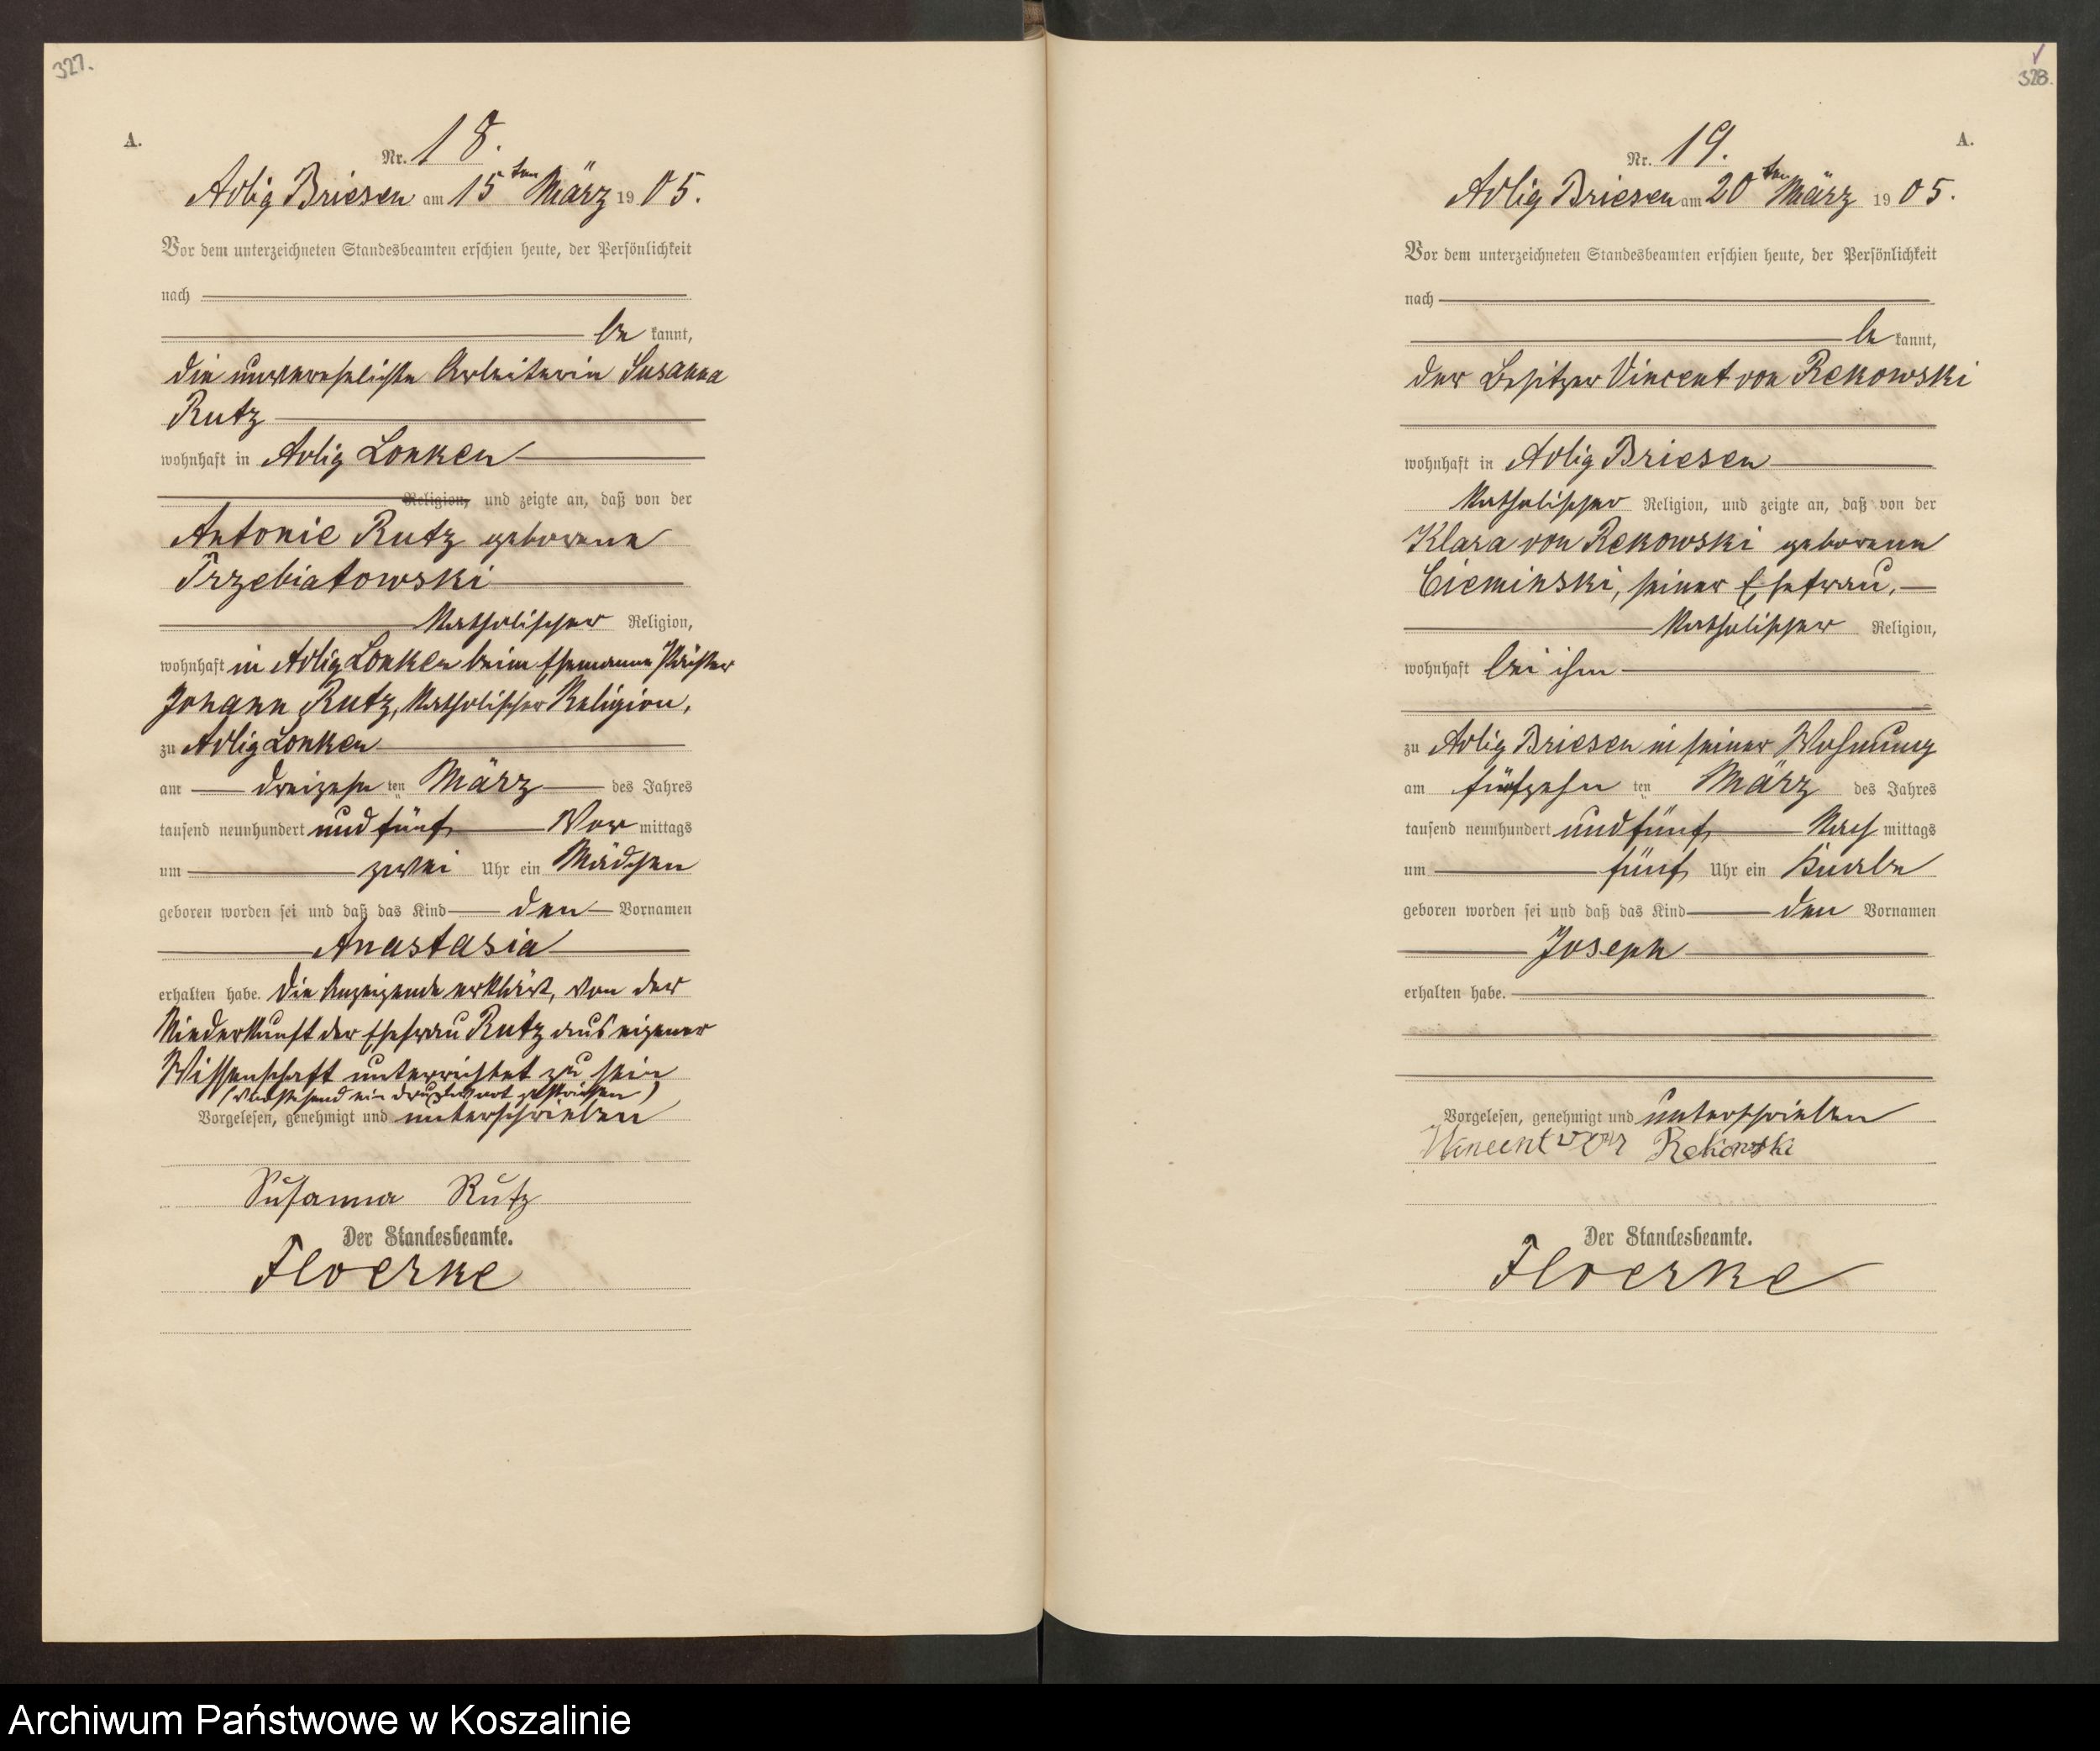 327.
A.
Nr. 18.
Adlig Briesen am 15ten März 1905.
Vor dem unterzeichneten Standesbeamten erschien heute, der Persönlichkeit
nach
be kannt,
die unverehelichte Arbeiterin Susanna
Rutz
wohnhaft in Adlig Lonken
Religion, und zeigte an, daß von der
Antonie Rutz geborene
Trzebiatowski
katholischer Religion,
wohnhaft in Adlig Lonken beim Ehemanne Pächter
Johann Rutz, katholischer Religion,
zu Adlig Lonken
am dreizehn ten März des Jahres
tausend neunhundert und fünf Vor mittags
um zwei Uhr ein Mädchen
geboren worden sei und daß das Kind den Vornamen
Anastasia
erhalten habe. Die Anzeigende erklärt, von der
Niederkunft der Ehefrau Rutz aus eigener
Wissenschaft unterrichtet zu sein
(Vorstehend ein Druckwort gestrichen)
Vorgelesen, genehmigt und unterschrieben
Susanna Rutz
Der Standesbeamte.
Floerke
328.
A.
Nr. 19.
Adlig Briesen am 20ten März 1905.
Vor dem unterzeichneten Standesbeamten erschien heute, der Persönlichkeit
nach
be kannt,
der Besitzer Vincent von Rekowski
wohnhaft in Adlig Briesen
katholischer Religion, und zeigte an, daß von der
Klara von Rekowski geborene
Cieminski, seiner Ehefrau,
katholischer Religion,
wohnhaft bei ihm
zu Adlig Briesen in seiner Wohnung
am fünfzehn ten März des Jahres
tausend neunhundert und fünf Nach mittags
um fünf Uhr ein Knabe
geboren worden sei und daß das Kind den Vornamen
Joseph
erhalten habe.
Vorgelesen, genehmigt und unterschrieben
Vincent von Rekowski
Der Standesbeamte.
Floerke
Archiwum Państwowe w Koszalinie